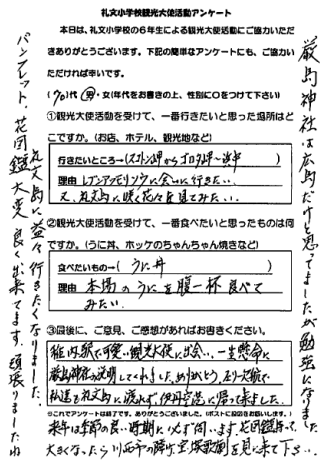 礼文小学校観光大使活動アンケート
本日は、礼文小学校の6年生による観光大使活動にご協力いただ
きありがとうございます。下記の簡単なアンケートにも、ご協力い
ただければ幸いです。
(70)代 男・女(年代をお書きの上、性別に○をつけて下さい)
①観光大使活動を受けて、一番行きたいと思った場所はど
こですか。(お店、ホテル、観光地など)
行きたいところ→(スコトン岬からゴロタ岬〜途中)
理由 レブンアツモリソウに会いに行きたい、
又、礼文島に咲く花々を見てみたい。
②観光大使活動を受けて、一番食べたいと思ったものは何
ですか。(うに丼、ホッケのちゃんちゃん焼きなど)
食べたいもの→(うに丼)
理由 本場のうにを腹一杯食べて
みたい。
③最後に、ご意見、ご感想があればお書きください。
稚内駅で可愛い観光大使に出会い、一生懸命に
厳島神社の説明してくれました、ありがとう。
私達も礼文島に渡れず伊丹空港に帰って来ました
※これでアンケートは終了です。ありがとうございました。(ポストに投函をお願いします。)
来年は季節の良い時期に必ず伺います
大きくなったら川西市の 宝塚歌劇を見に来て下さい…
厳島神社は広島だけと思ってましたが勉強になりました
礼文島に益々行きたくなりました。
パンフレット、花図鑑大変良く出来てます。頑張りましたね